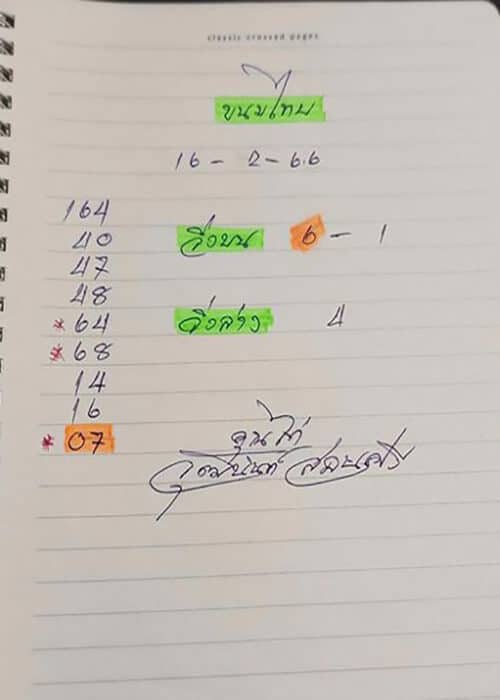 classic crossed pages
ขนมไทย
16 - 2 - 66
164
40
วิ่งบน 6 - 1
47
48
*64
วิ่งล่าง 4
*68
14
16
*07